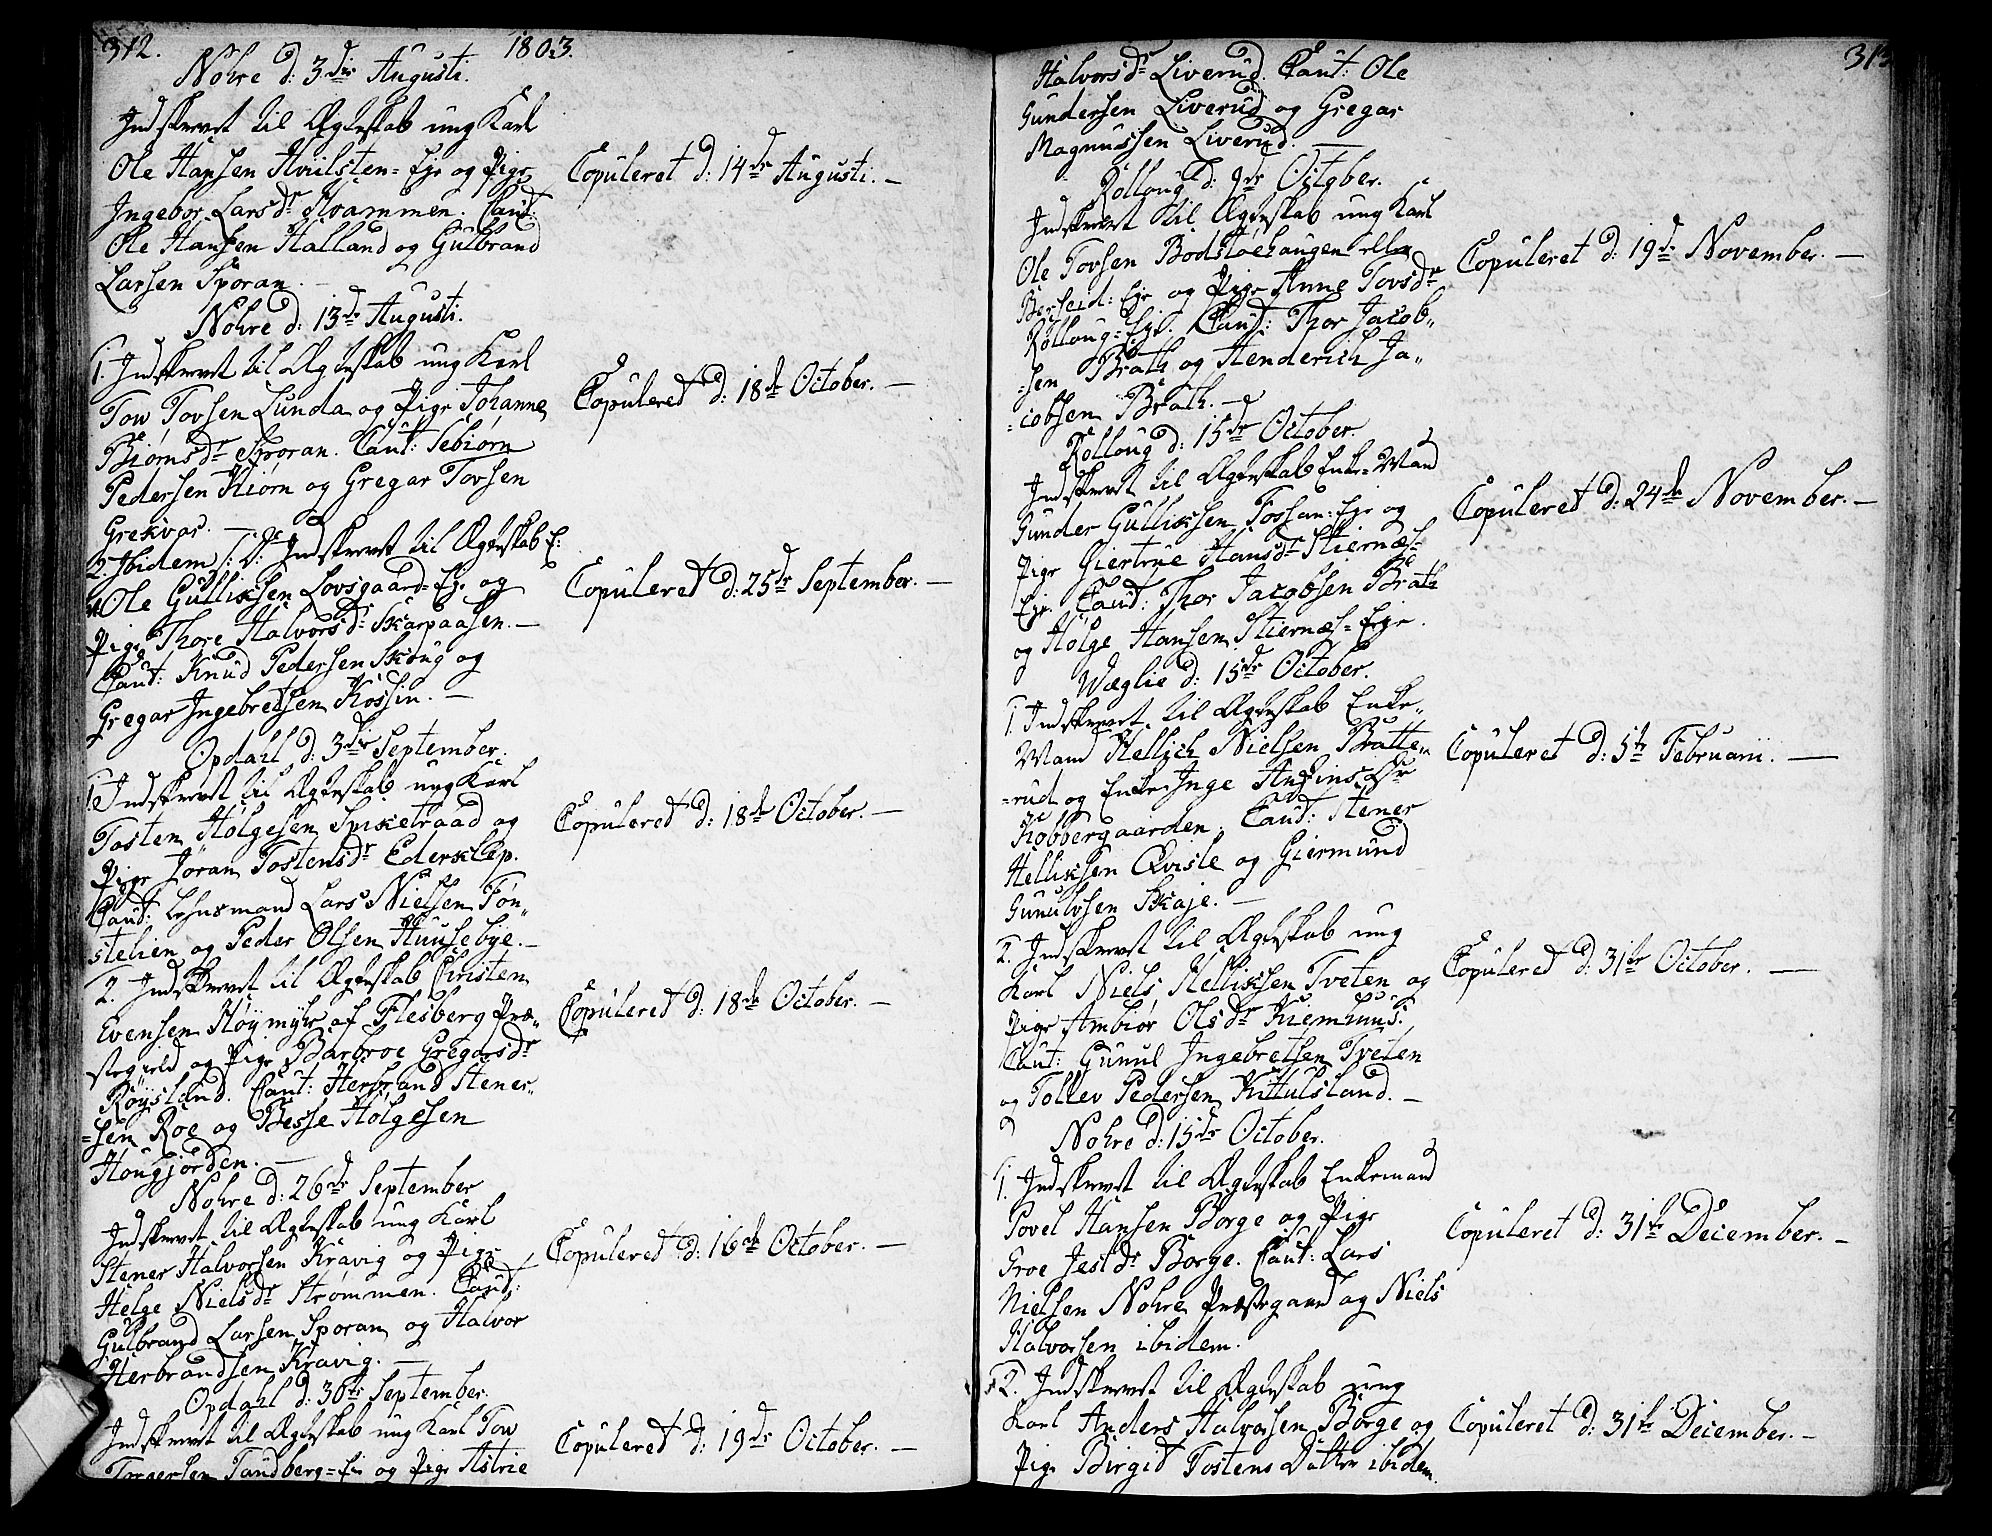 312. 1803.
Nohre d: 3die Augusti.
Indskrevet til Ægteskab ung Karl
Ole Hansen Hviilsten-Eje og Pige
Ingebor Larsdr Hvammen. Caut:
Ole Hansen Halland og Gulbrand
Larsen Sporan.
Copuleret d: 14de Augusti. —
Nohre d: 13de Augusti.
1. Indskrevet til Ægteskab ung Karl
Tow Tovsen Lunda og Pige Johanne
Biørnsdr Sporan. Caut: Sebiørn
Pedersen Kiørn og Gregar Tovsen
Grekvar. —
Copuleret d: 18de October. —
2. Ibidem s: D: Indskrevet til Ægteskab E:
M Ole Gulliksen Lovsgaard-Eje og
Pige Thore Halvorsdr Skarpaasen. —
Caut: Knud Pedersen Skoug og
Gregar Ingebretsen Kossin. —
Copuleret d: 25de September. —
Opdahl d: 3die September.
1. Indskrevet til Ægteskab ung Karl
Tosten Holgesen Spiketraad og
Pige Jöran Tostensdr Ederklep.
Caut: Lehnsmand Lars Nielsen Tøn-
stelien og Peder Olsen Huusebye. —
Copuleret d: 18de October. —
2. Indskrevet til Ægteskab Christen
Evensen Høymyhr af Flesberg Præ-
stegield og Pige Barbroe Gregarsdr
Røysland. Caut: Herbrand Stener-
-sen Roe og Besse Holgesen
Hougjorden. —
Copuleret d: 18de October. —
Nohre d: 26de September
Indskrevet til Ægteskab ung Karl
Stener Halvorsen Kravig og Pige
Helge Nielsdr Strømmen. Caut:
Gulbrand Larsen Sporan og Halvor
Herbrandsen Kravig. —
Copuleret d: 16de October. —
Opdahl d: 30te September.
Indskrevet til Ægteskab ung Karl Tow
Torgersen Tandberg-Eie og Pige Astrie
Copuleret d: 19de October. —
313
Halvorsdr Liverud. Caut: Ole
Gundersen Liverud og Gregar
Magnussen Liverud. —
Rolloug d: 9de October.
Indskrevet til Ægteskab ung Karl
Ole Tovsen Bodstøehaugen eller
Berseid-Eje og Pige Anne Tovsdr
Rolloug-Eje. Caut: Thor Jacob-
-sen Bråth og Henderich Ja-
-cobsen Bråth. —
Copuleret d: 19de November. —
Rolloug d: 15de October.
Indskrevet til Ægteskab Enke-Mand
Gunder Gulliksen Fossan-Eje og
Pige Giertrue Hansdr Stiernæs-
Eje. Caut: Thor Jacobsen Bråth
og Holge Hansen Stiernæs-Eje.
Copuleret d: 24de November. —
Wæglie d: 15de October.
1 Indskrevet til Ægteskab Enke-
Mand Hellich Nielsen Bratte-
-rud og Enke Inge Anfinsdr
Kobbergaarden. Caut: Stener
Helliksen Qvisle og Giermund
Gunulvsen Skaje. —
Copuleret d: 5te Februarii. —
2. Indskrevet til Ægteskab ung
Karl Niels Helliksen Tveten og
Pige Ambiør Olsdr Kiemhuus.
Caut: Gunul Ingebretsen Tveten
og Tollev Pedersen Kittulsland. —
Copuleret d: 31te October. —
Nohre d: 15de October.
1. Indskrevet til Ægteskab Enkemand
Povel Hansen Borge og Pige
Groe Jestdr Borge. Caut: Lars
Nielsen Nohre Præstegaard og Niels
Halvorsen ibidem.
Copuleret d: 31te December. —
2. Indskrevet til Ægteskab ung
Karl Anders Halvorsen Borge og
Pige Birgit Tostens Datter ibidem.
Copuleret d: 31te December. —